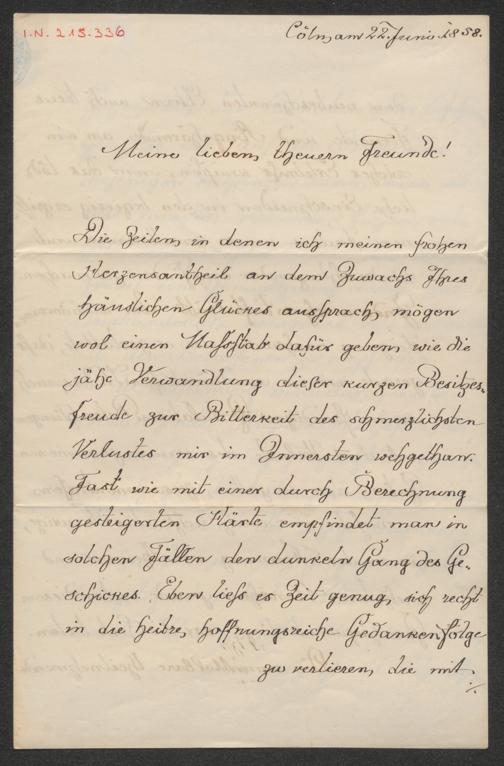 I.N. 215.336
Cöln, am 22. Junio 1858.
Meine lieben, theuern Freunde!
Die Zeilen, in denen ich meinen frohen
Herzensantheil an dem Zuwachs Ihres
häuslichen Glückes aussprach, mögen
wol einen Maßstab dafür geben, wie die
jähe Verwandlung dieser kurzen Besitzes-
freude zur Bitterkeit des schmerzlichsten
Verlustes mir im Innersten wehgethan.
Fast wie mit einer durch Berechnung
gesteigerten Härte empfindet man in
solchen Fällen den dunkeln Gang des Ge-
schickes. Eben ließ es Zeit genug, sich recht
in die heitre, hoffnungsreiche Gedankenfolge
zu verlieren, die mit
./.